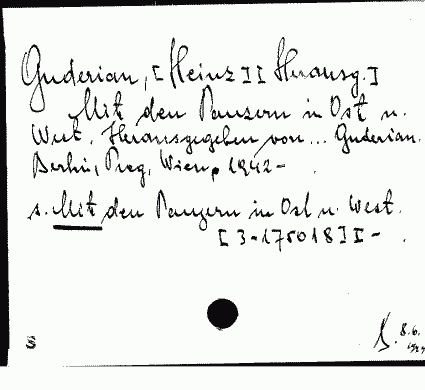 Guderian, [Heinz] [Herausg.]
Mit den Panzern in Ost u.
West. Herausgegeben von... Guderian.
Berlin, Prag, Wien, 1942-
s. Mit den Panzern in Ost u. West.
[3-175018] I -
S
8.6.